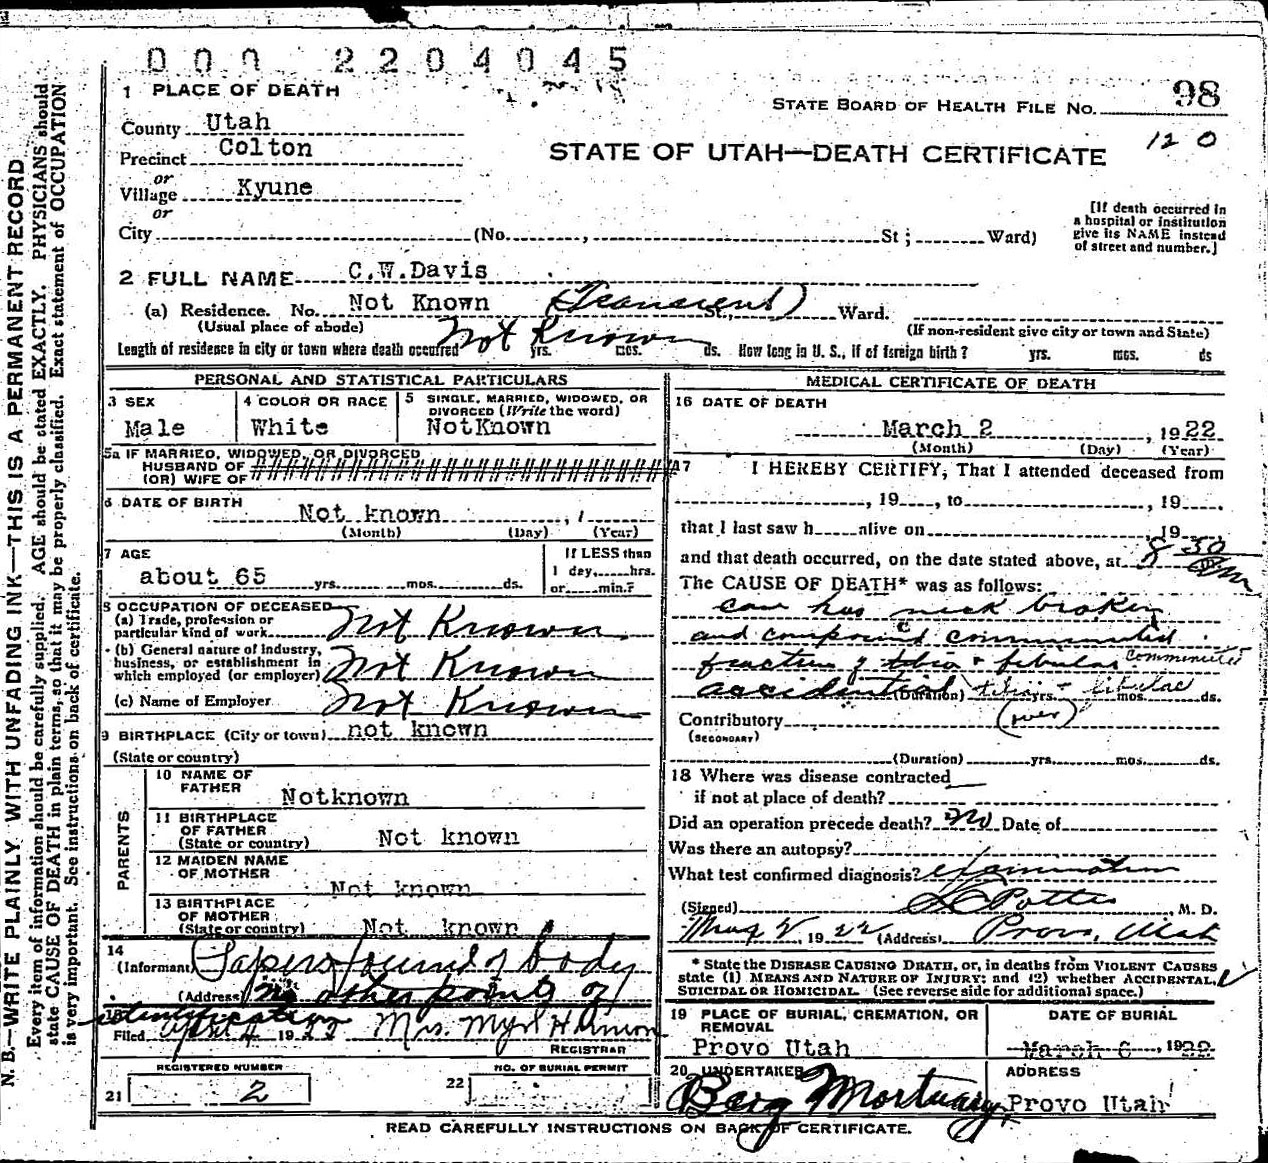 000 2204045
1 PLACE OF DEATH
STATE BOARD OF HEALTH FILE NO. 98
County Utah
120
Precinct Colton
STATE OF UTAH—DEATH CERTIFICATE
or
Village Kyune
or
[If death occurred in
a hospital or institution
give its NAME instead
of street and number.]
City (No. , St ; Ward)
2 FULL NAME C.W.Davis
(a) Residence. No. Not Known (Transient) St., Ward.
(Usual place of abode) (If non-resident give city or town and State)
Length of residence in city or town where death occurred Not Known yrs. mos. ds. How long in U. S., if of foreign birth? yrs. mos. ds
PERSONAL AND STATISTICAL PARTICULARS
3 SEX
Male
4 COLOR OR RACE
White
5 SINGLE, MARRIED, WIDOWED, OR
DIVORCED (Write the word)
NotKnown
5a IF MARRIED, WIDOWED, OR DIVORCED
HUSBAND OF
(OR) WIFE OF ##############################
6 DATE OF BIRTH
Not known , 1
(Month) (Day) (Year)
7 AGE
about 65 yrs. mos. ds.
If LESS than
1 day, hrs.
or min.?
8 OCCUPATION OF DECEASED
(a) Trade, profession or
particular kind of work Not Known
(b) General nature of industry,
business, or establishment in
which employed (or employer) Not Known
(c) Name of Employer Not Known
9 BIRTHPLACE (City or town) not known
(State or country)
PARENTS
10 NAME OF
FATHER
Notknown
11 BIRTHPLACE
OF FATHER
(State or country) Not known
12 MAIDEN NAME
OF MOTHER
Not known
13 BIRTHPLACE
OF MOTHER
(State or country) Not known
14
(Informant) Papers found of body
(Address) no other points of
15 identification
Filed April 4 1922 Mrs. Myrl
REGISTRAR
REGISTERED NUMBER
21 2
NO. OF BURIAL PERMIT
22
MEDICAL CERTIFICATE OF DEATH
16 DATE OF DEATH
March 2 , 1922
(Month) (Day) (Year)
17 I HEREBY CERTIFY, That I attended deceased from
, 19 , to , 19 .
that I last saw h alive on , 19
and that death occurred, on the date stated above, at 8 30
The CAUSE OF DEATH* was as follows:
neck broken
and compound comminuted
fracture of tibia + fibulae comminuted
accidental (Duration) tibia yrs. + fibulae mos. ds.
(over)
Contributory
(SECONDARY)
(Duration) yrs. mos. ds.
18 Where was disease contracted
if not at place of death?
Did an operation precede death? No Date of
Was there an autopsy?
What test confirmed diagnosis? examination
(Signed) Potter , M. D.
, 1922 (Address) Provo, Utah
* State the DISEASE CAUSING DEATH, or, in deaths from VIOLENT CAUSES
state (1) MEANS AND NATURE OF INJURY; and (2) whether ACCIDENTAL,
SUICIDAL OR HOMICIDAL. (See reverse side for additional space.)
19 PLACE OF BURIAL, CREMATION, OR
REMOVAL
Provo Utah
DATE OF BURIAL
March 6 , 1922
20 UNDERTAKER
Berg Mortuary
ADDRESS
Provo Utah
READ CAREFULLY INSTRUCTIONS ON BACK OF CERTIFICATE.
N. B.—WRITE PLAINLY, WITH UNFADING INK—THIS IS A PERMANENT RECORD
Every item of information should be carefully supplied. AGE should be stated EXACTLY. PHYSICIANS should
state CAUSE OF DEATH in plain terms, so that it may be properly classified. Exact statement of OCCUPATION
is very important. See instructions on back of certificate.